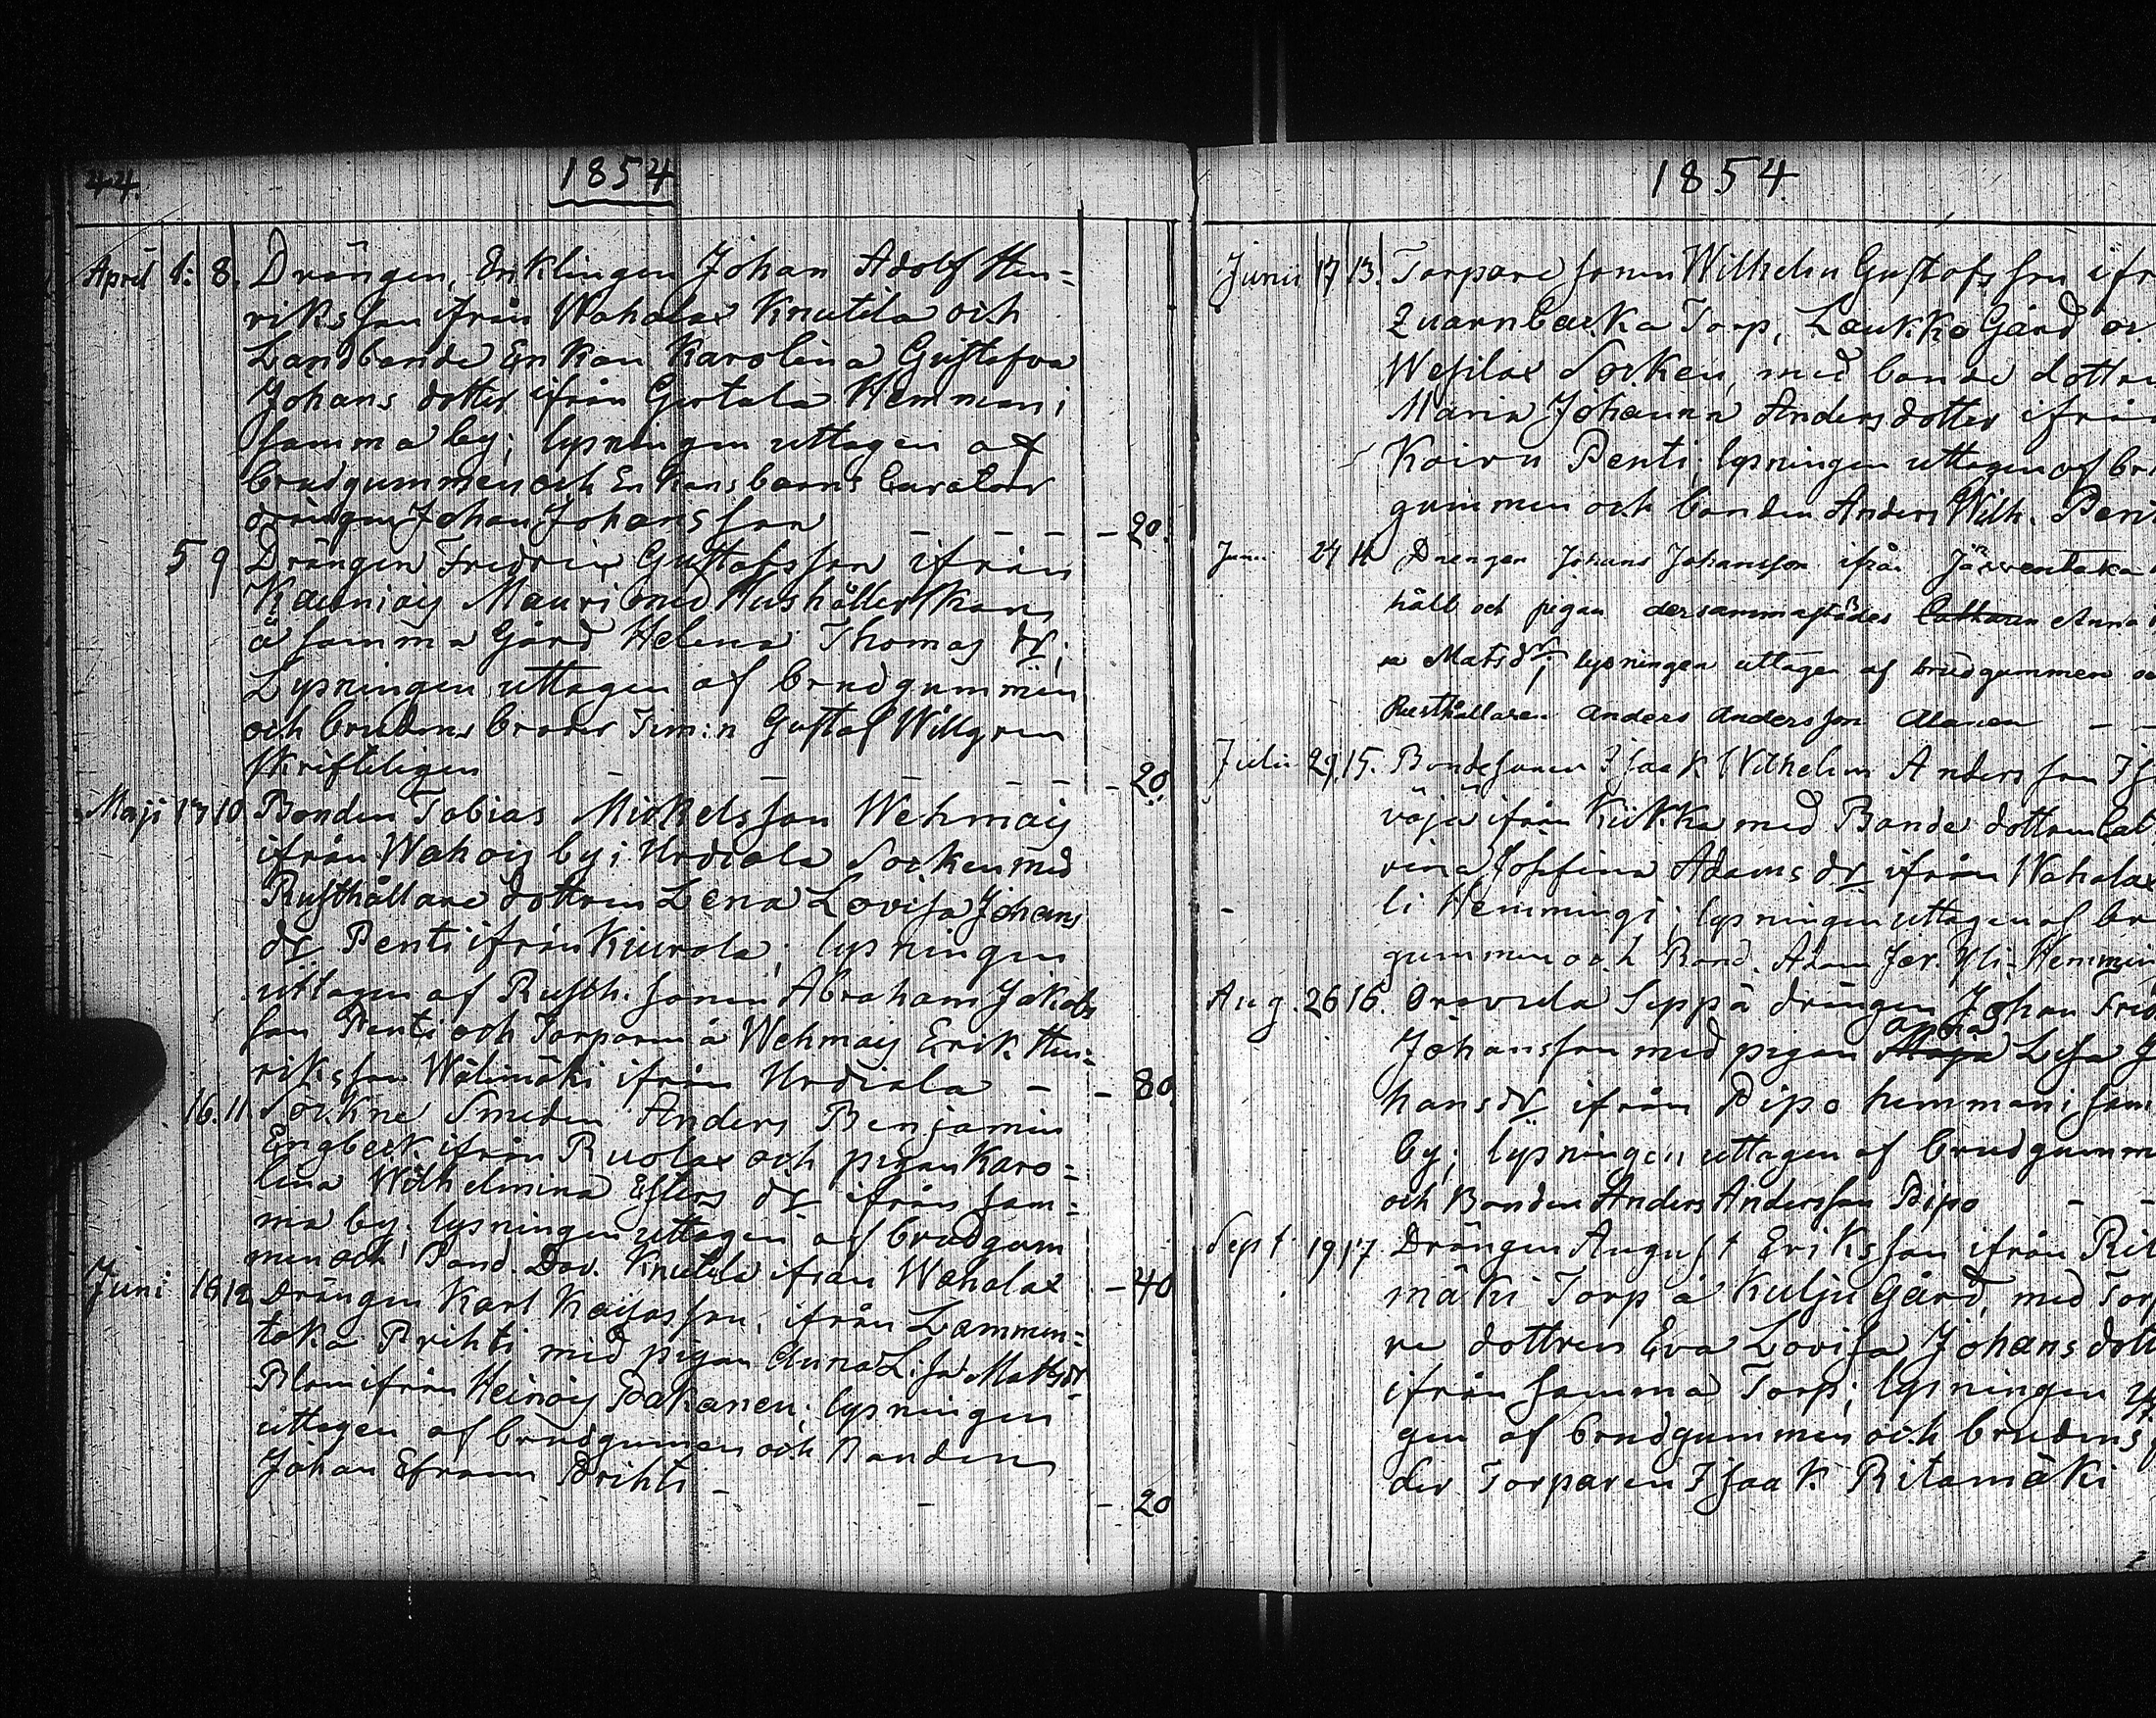 44.
1854
April 1. 8. Drängen, Enklingen Johan Adolf Hen=
riksson ifrån Wahalax Knutila och
Landbonde Enkan Karolina Gustafva
Johans dotter ifrån Gertala Hemman i
samma by; lysningen uttagen af
brudgummen och Enkans barns Curator
drängen Johan Johansson — — — - 20.
5 9 Drängen Fredric Gustafsson ifrån
Kauniais Mauri med Hushållerskan
å samma Gård Helena Thomas dr;
Lysningen uttagen af brudgummen
och brudens broder Tim:n Gustaf Willgren
skriftligen — — — - 20.
Maji 13 10 Bonden Tobias Mickelsson Wehmaij
ifrån Wahois by i Urdiala Socken med
Rusthållare dottren Lena Lovisa Johans
dr Penti ifrån Kiurola; lysningen
uttagen af Rusth. sonen Abraham Jakobs
son Penti och Torparen å Wehmais Erik Hen=
riksson Wälimäki ifrån Urdiala — - 80.
16. 11. Sockne Smeden Anders Benjamin
Engberk ifrån Ruolax och pigan Karo=
lina Wilhelmina Esters dr ifrån sam=
ma by; lysningen uttagen af brudgum
men och Bond. Dav. Knutila ifrån Wahalax - 40
Juni 16 12 Drängen Karl Kaijasson, ifrån Lammen=
taka Prihti med pigan Anna Lisa Matts dr
Blom ifrån Heinois Pakanen; lysningen
uttagen af brudgummen och Bonden
Johan Efraim Prihti — — - 20
1854
Junii 17 13. Torpare sonen Wilhelm Gustafsson ifr
Quarnbacka Torp, Laukko Gård oc
Wesilax Socken, med bonde dottre
Maria Johanna Anders dotter ifrån
Koivu Penti; lysningen uttagen af br
gummen och bonden Anders Wilh. Pen
Juni 24 14 Drengen Johans Johansson ifrån Järventaka
håll och pigan dersammastädes Anna
sa Matsdr; lysningen uttagen af brudgummen oc
Rusthållaren Anders Andersson Alanen — —
Julii 29. 15. Bondesonen Isaak Wilhelm Andersson
väjä ifrån Kiikka med Bonde dottren Cat
rina Josefina Adams dr ifrån Wahalax
li Hemmingi; lysningen uttagen af br
gummen och Bond. Adam Jer. Yli-Hemmin
Aug. 26 16. Oravula Seppä drängen Johan Fred
Johansson med pigan Maja Anna Lisa J
hans dr ifrån Pipo hemman i sam
by; lysningen uttagen af brudgumm
och Bonden Anders Andersson Pipo — —
Sept. 19 17 Drängen August Eriksson ifrån Rit
mäki Torp å Kulju Gård, med Tor
re dottren Eva Lovisa Johans dott
ifrån samma Torp; lysningen
gen af brudgummen och brudens
der Torparen Isaak Ritamäki